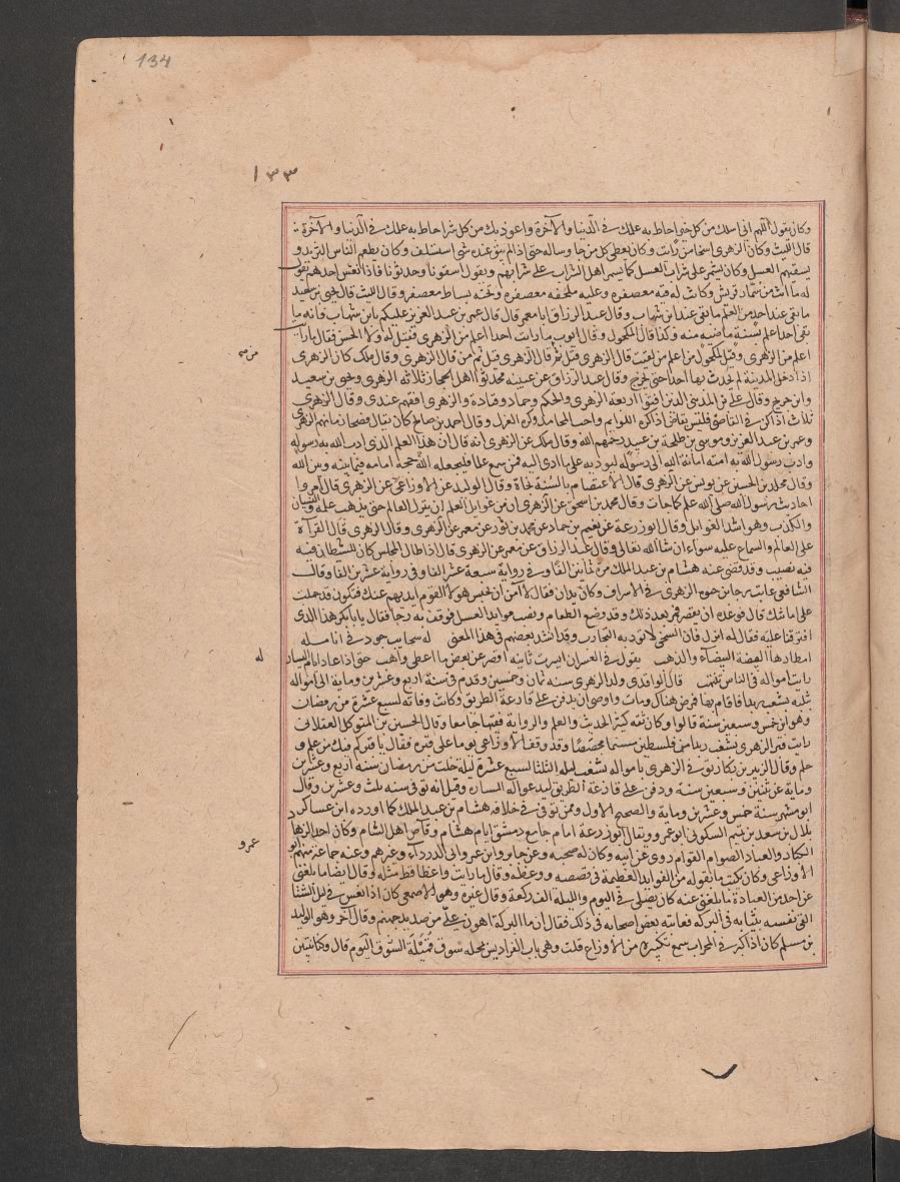 134
١٣٣
وكان يقول اللهم انى اسلك من كل خير احاط به علمك فى الدنيا والآخرة واعوذ بك من كل شر احاط به علمك فى الدنيا والآخرة
قال الليث وكان الزهرى اسخا من رايت وكان يعطى كل من جا وساله حتى اذا لم يبق عنده شى استسلف وكان يطعم الناس الثريد و
يسقيهم العسل وكان يسمر على شراب العسل كما يسمر اهل الشراب على شرابهم ويقول اسقونا وحدثونا فاذا نعس احدهم يقول
له ما انت من سمار قريش وكانت له قبه معصفره وعليه ملحفه معصفره وتحته بساط معصفر وقال الليث قال يحيى بن سعيد
ما بقى عند احد من العلم ما بقى عند ابن شهاب وقال عبد الرزاق انا معمر قال قال عمر بن عبد العزيز عليكم بابن شهاب فانه ما
بقى احد اعلم بسنة ماضيه منه وكذا قال مكحول وقال ايوب ما رايت احدا اعلم من الزهرى فقيل له ولا الحسن فقال ما رايت
اعلم من الزهرى وقيل لمكحول من اعلم من لقيت قال الزهرى قيل ثم من قال الزهرى قيل ثم من قال الزهرى وقال ملك كان الزهرى
من مه
اذا دخل المدينة لم يحدث بها احدا حتى يخرج وقال عبد الرزاق عن عيينه محدثوا اهل الحجاز ثلاثه الزهرى ويحيى بن سعيد
وابن جريج وقال على بن المدينى الذين افتوا اربعة الزهرى والحكم وحماد وقتادة والزهرى افقههم عندى وقال الزهرى
ثلاث اذا كن فى القاضى فليس بقاض اذا كره اللوايم واحب المحامد وكره العزل وقال احمد بن صالح كان يقال فصحا زمانهم الزهرى
وعمر بن عبد العزيز وموسى بن طلحة بن عبيد رحمهم الله وقال ملك عن الزهرى انه قال ان هذا العلم الذى ادب الله به رسوله
وادب رسول الله به امته امانة الله الى رسوله ليوديه على ما ادى اليه فمن سمع علما فليجعله امامه حجة فيما بينه وبين الله
وقال محمد بن الحسين عن يونس عن الزهرى قال الاعتصام بالسنة نجاة وقال الوليد عن الاوزاعى عن الزهرى قال امروا
احاديث رسول الله صلى الله عليه كما جات وقال محمد بن اسحق عن الزهرى ان من غوايل العلم ان يترك العالم حتى يذهب علمه والنسيان
والكذب وهو اشد الغوايل وقال ابو زرعة عن نعيم بن حماد عن محمد بن ثور عن معمر عن الزهرى وقال الزهرى قال القرآة
على العالم والسماع عليه سواء ان شا الله تعالى وقال عبد الرزاق عن معمر عن الزهرى قال اذا طال المجلس كان للشيطان فيه
فيه نصيب وقد قضى عنه هشام بن عبد الملك مرة ثمانين الفا وفى رواية سبعة عشر الفا وفى رواية عشرين الفا وقال
الشافعى عاتب رجا بن حيوه الزهرى فى الاسراف وكان يدان فقال لا آمن ان يحبس هولا القوم ايديهم عنك فتكون قد حملت
على امانتك قال فوعده ان يقصر فمر بعد ذلك وقد وضع الطعام ونصب موايد العسل فوقف به رجا فقال يا بابكر هذا الذى
افترقنا عليه فقال له انزل فان السخى لا تؤدبه التجارب وقد انشد بعضهم فى هذا المعنى له سحايب جود فى انامله
امطارها الفضة البيضآء والذهب يقول فى العسران ايسرت ثانية اقصر عن بعض ما اعطى واهب حتى اذا عاد ايام اليسار
له
رايت امواله فى الناس تنتهب قال الواقدى ولد الزهرى سنه ثمان وخمسين وقدم فى سنة اربع وعشرين وماية الى امواله
ثلثه بشغب بدا فاقام بها فمرض هناك ومات واوصى ان يدفن على قارعة الطريق وكانت وفاته لسبع عشرة من رمضان
وهو ابن خمس وسبعين سنة قالوا وكان ثقه كثير الحديث والعلم والرواية فقيها جامعا وقال الحسين بن المتوكل العسقلانى
رايت قبر الزهرى بشغب بدا من فلسطين مسنما مجصصا وقد وقف الاوزاعى يوما على قبره فقال يا قبر كم فيك من علم و
حلم وقال الزبير بن بكار توفى الزهرى بامواله بشغب ليلة الثلثا لسبع عشرة ليلة خلت من رمضان سنه اربع وعشرين
وماية عن ثنتين وسبعين سنة ودفن على قارعة الطريق ليدعو له الماره وقيل انه توفى سنه ثلث وعشرين وقال
ابو معشر سنة خمس وعشرين وماية والصحيح الاول وممن توفى فى خلافه هشام بن عبد الملك كما اورده ابن عساكر
بلال بن سعد بن تميم السكونى ابو عمرو ويقال ابو زرعة امام جامع دمشق ايام هشام وقاص اهل الشام وكان احد الزهاد
عمرو
الكبار والعباد الصوام القوام روى عن ابيه وكان له صحبه وعن جابر وابن عمر وابى الدردآء وغيرهم وعنه جماعة منهم ابو
الاوزاعى وكان يكتب ما يقوله من الفوايد العظيمة فى قصصه ووعظه وقال ما رايت واعظا قط مثله وقال ايضا ما بلغنى
عن احد من العبادة ما بلغنى عنه كان يصلى فى اليوم والليلة الف ركعة وقال غيره وهو الاصمعى كان اذا نعس فى ليل الشتا
القى نفسه بثيابه فى البركه فعاتبه بعض اصحابه فى ذلك فقال ان ما البركة اهون على من صديد جهنم وقال آخر وهو الوليد
بن مسلم كان اذا كبر فى المحراب سمع تكبيره من الاوزاع قلت وهى باب الفراديس محله سوق قميلة السوق اليوم قال وكنا نتبين